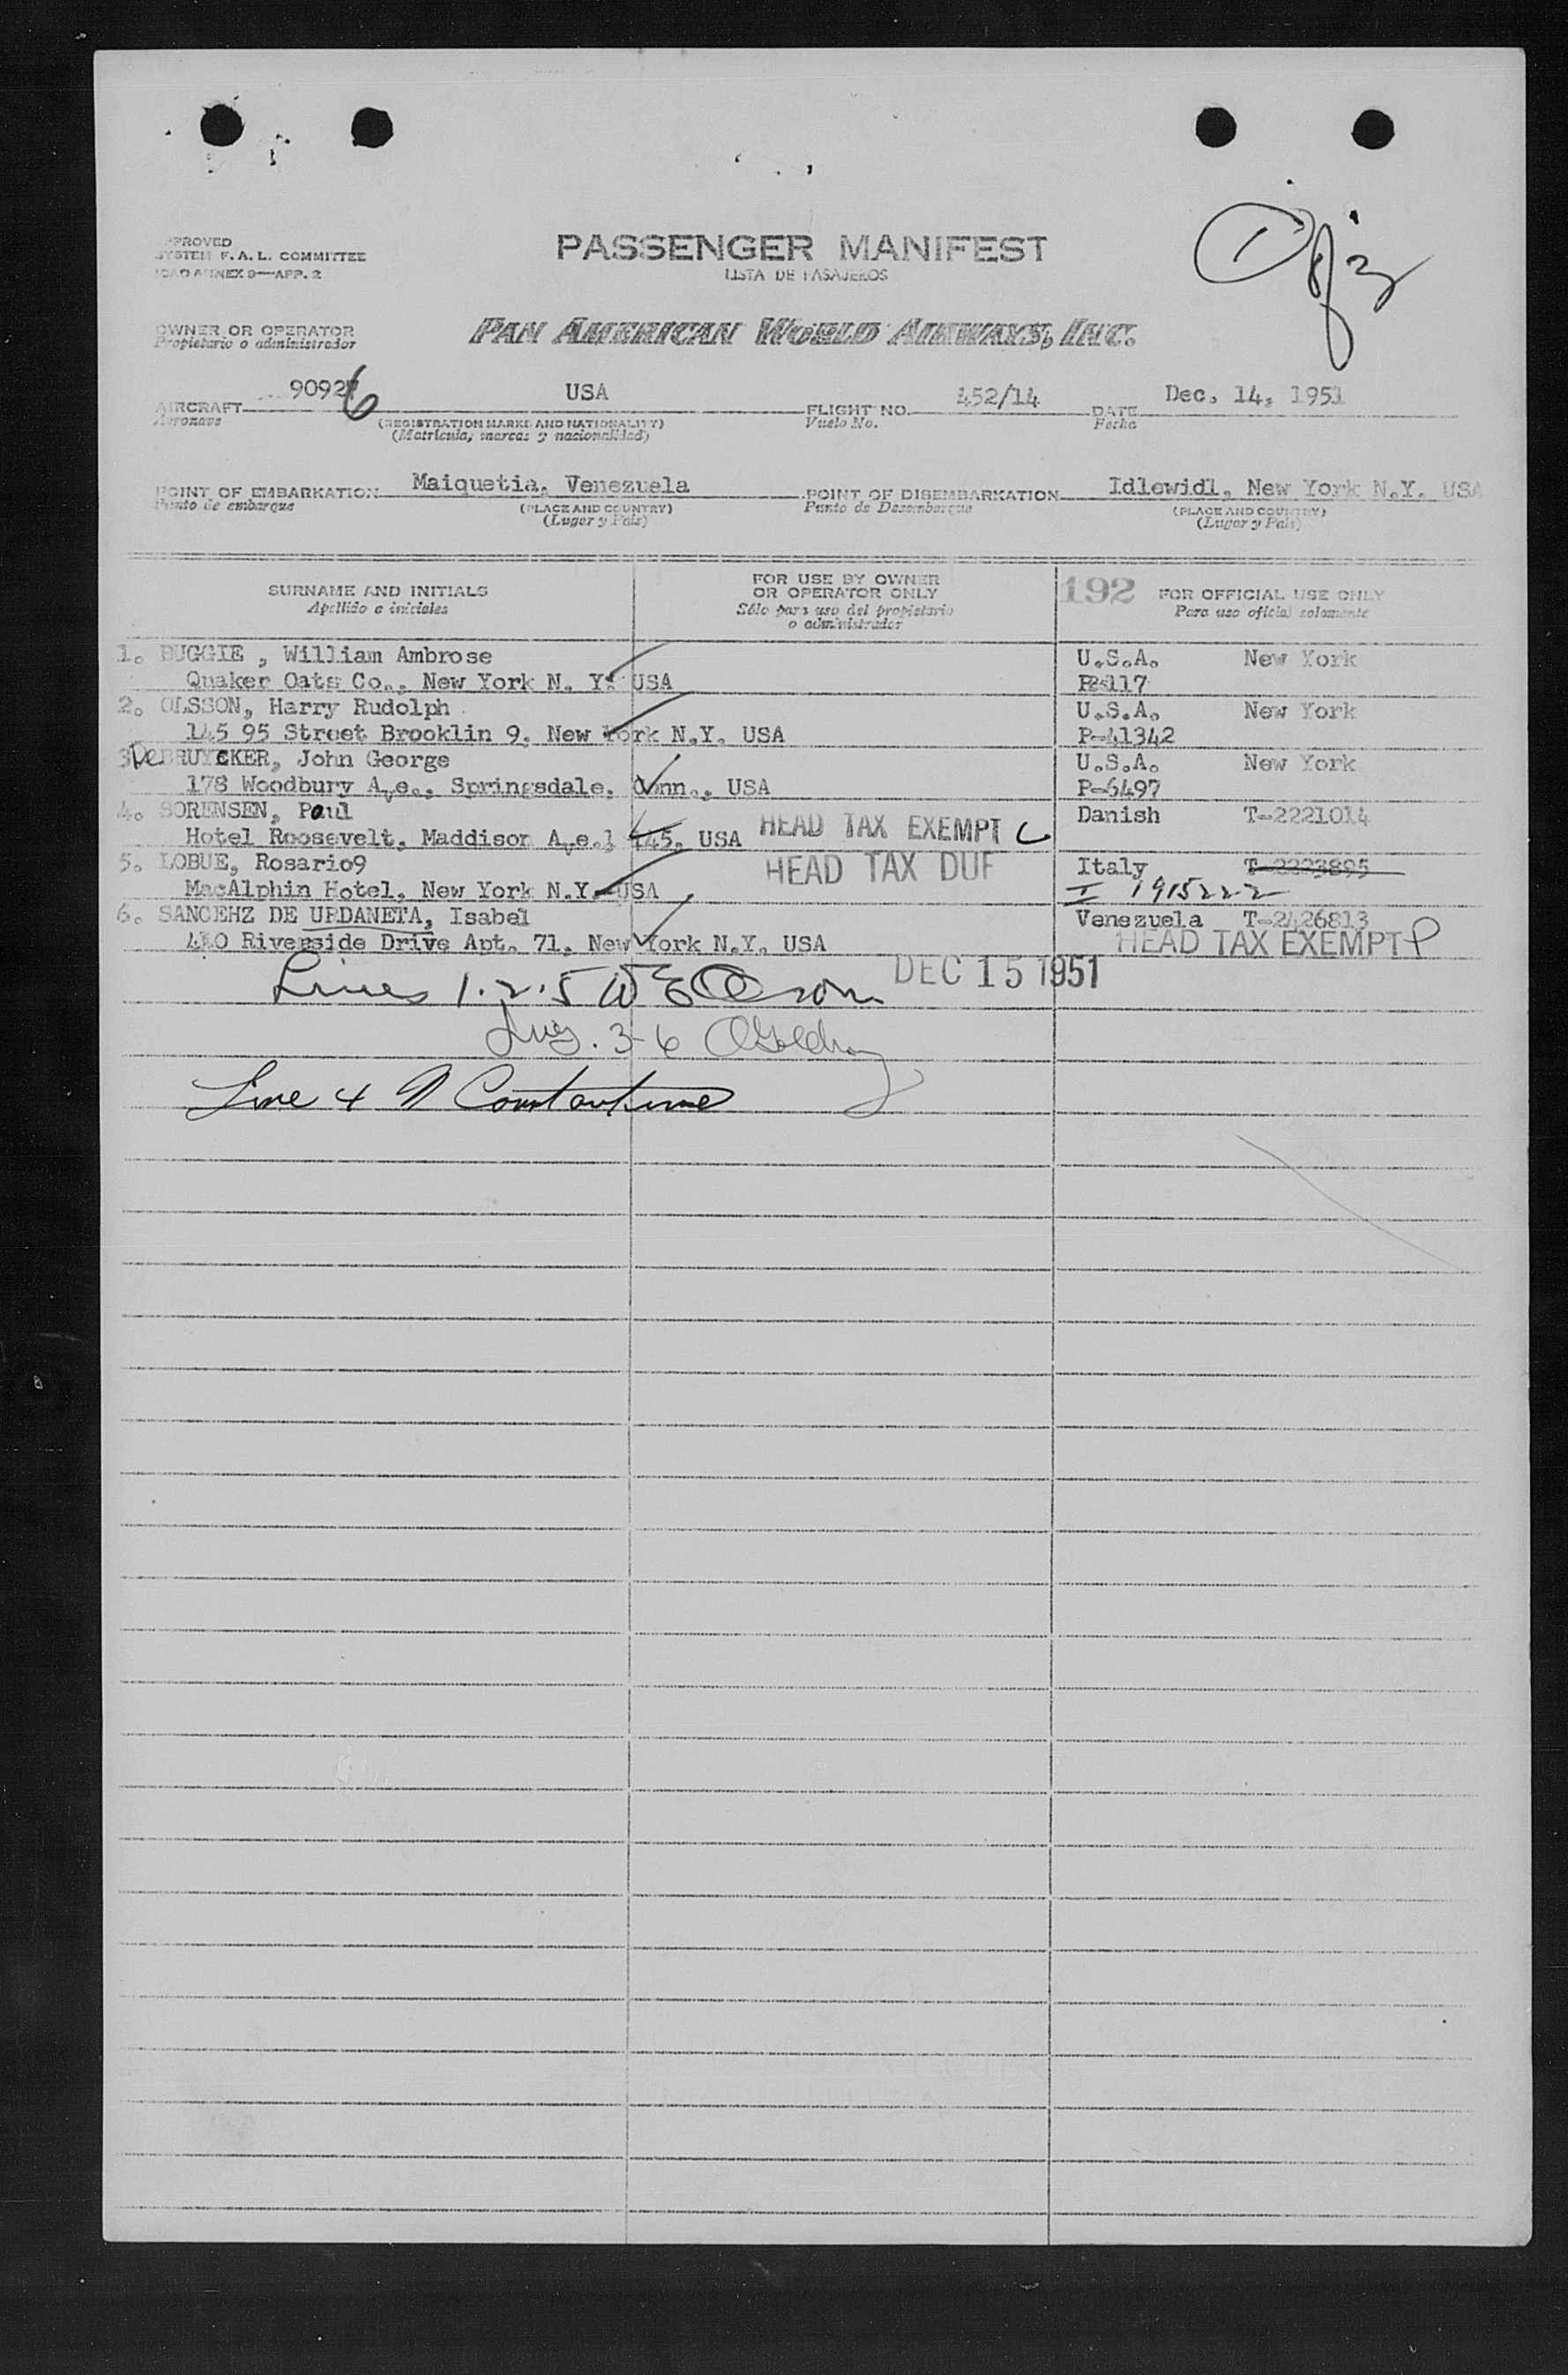 APPROVED
SYSTEM F. A. L. COMMITTEE
ICAO ANNEX 9—APP. 2
PASSENGER MANIFEST
LISTA DE PASAJEROS
1
OWNER OR OPERATOR
Propietario o administrador
PAN AMERICAN WORLD AIRWAYS, INC.
AIRCRAFT 9092 6 USA FLIGHT NO. 452/14 DATE Dec. 14, 1951
Aeronave (REGISTRATION MARKS AND NATIONALITY) Vuelo No. Fecha
(Matricula, marcas y nacionalidad)
POINT OF EMBARKATION Maiquetia, Venezuela POINT OF DISEMBARKATION Idlewidl, New York N.Y. USA
Punto de embarque (PLACE AND COUNTRY) Punto de Desembarque (PLACE AND COUNTRY)
(Lugar y País) (Lugar y País)
SURNAME AND INITIALS FOR USE BY OWNER OR OPERATOR ONLY 192 FOR OFFICIAL USE ONLY
Apellido e iniciales Sólo para uso del propietario o administrador Para uso oficial solamente
1. BUGGIE , William Ambrose U.S.A. New York
Quaker Oats Co., New York N. Y. USA 117
2. OLSSON, Harry Rudolph U.S.A. New York
145 95 Street Brooklin 9, New York N.Y. USA P-41342
3. De BRUYCKER, John George U.S.A. New York
178 Woodbury Ave., Springsdale, Conn., USA P-6497
4. SORENSEN, Paul Danish T-2221014
Hotel Roosevelt, Maddison Ave.] 445, USA HEAD TAX EXEMPT C
5. LOBUE, Rosario9 HEAD TAX DUE Italy T-2223895
MacAlphin Hotel, New York N.Y. USA I 1915222
6. SANCEHZ DE URDANETA, Isabel Venezuela T-2426813
440 Riverside Drive Apt. 71, New York N.Y. USA HEAD TAX EXEMPT P
Lines 1.2.5 DEC 15 1951
3-6
Line 4 N Constantine